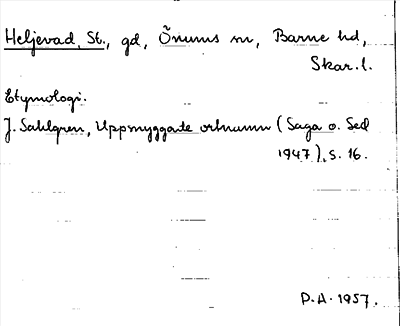 Heljevad, St., gd, Önums sn, Barne hd,
Skar. l.
Etymologi.
J. Sahlgren, Uppsnyggade ortnamn (Saga o. Sed
1947), s. 16.
P.A. 1957.